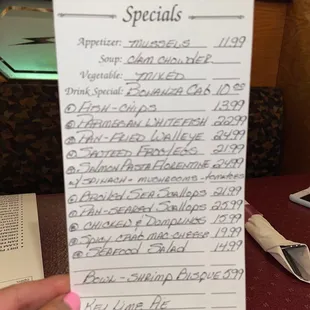 Specials
Appetizer: MUSSELS 11.99
Soup: CLAM CHOWDER
Vegetable: MIXED
Drink Special: BONANZA CAB 10.00
FISH-CHIPS 13.99
PARMESAN WHITEFISH 22.99
PAN-FRIED WALLEYE 24.99
SAUTEED FROG LEGS 21.99
SALMON PASTA FLORENTINE 24.99
W/SPINACH-MUSHROOMS-TOMATOES
BROILED SEA SCALLOPS 21.99
PAN-SEARED SCALLOPS 25.99
CHICKEN & DUMPLINGS 15.99
SPICY CRAB MAC CHEESE 19.99
SEAFOOD SALAD 14.99
BOWL-SHRIMP BISQUE 5.99
KEY LIME PIE